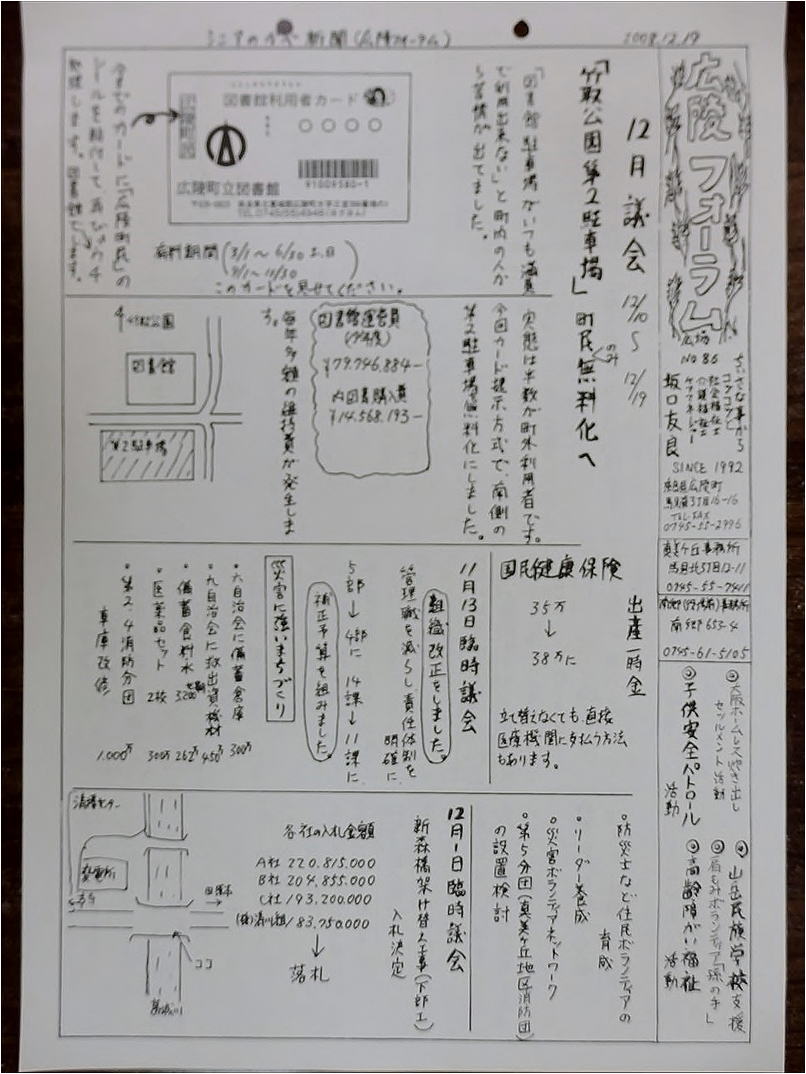 新聞(広陵フォーラム)
2008.12.19
広陵フォーラム
広場
No 86
ちいさな事から
コツコツと
社会福祉士
介護福祉士
ケアマネージャー
坂口友良
SINCE 1992
奈良県広陵町
馬見南3丁目16-16
TEL・FAX
0745-55-2996
真美ヶ丘事務所
馬見北5丁目12-11
0745-55-7411
南郷653-4
0745-61-5105
◎大阪ホームレス炊き出し
セツルメント活動
◎子供安全パトロール
活動
◎山岳民族学校支援
◎肩もみボランティア「孫の手」
◎高齢障がい福祉
活動
12月議会 12/10〜12/19
「竹取公園第2駐車場」町民のみ無料化へ
「図書館駐車場がいつも満員
で利用出来ない」と町内の人か
ら苦情が出てました。
図書館利用者カード
広陵町民
○○○○
91009580-1
広陵町立図書館
今までのカードに「広陵町民」の
シールを貼付して、再びラミネ
図書館にて
有料期間(3/1〜6/30 土.日
9/1〜11/30)
このカードを見せてください。
実態は半数が町外利用者です。
今回カード提示方式で、南側の
第2駐車場を無料化にしました。
図書館運営費
¥79.746.884−
内図書購入費
¥14.568.193−
毎年多額の維持費が発生しま
す。
竹取公園
図書館
第2駐車場
国民健康保険
出産一時金
35万
↓
38万に
立て替えなくても、直接
医療機関に支払う方法
もあります。
11月13日臨時議会
組織改正をしました。
管理職を減らし責任体制を
明確に
5部→4部に 14課→11課に
補正予算を組みました。
災害に強いまちづくり
・六自治会に備蓄倉庫 300万
・九自治会に救出資機材 450万
・備蓄食料・水 3200 262万
・医薬品セット 2校 300万
・第2.4消防分団
車庫改修 1.000万
・防災士など住民ボランティアの
育成
・リーダー養成
・災害ボランティアネットワーク
・第5分団(真美ヶ丘地区消防団)
の設置検討
12月1日臨時議会
新森橋架け替え工事(下部工)
入札決定
各社の入札金額
A社 220.815.000
B社 204.855.000
C社 193.200.000
(株)清川組 183.750.000
↓
落札
清掃センター
変電所
ココ
葛城川